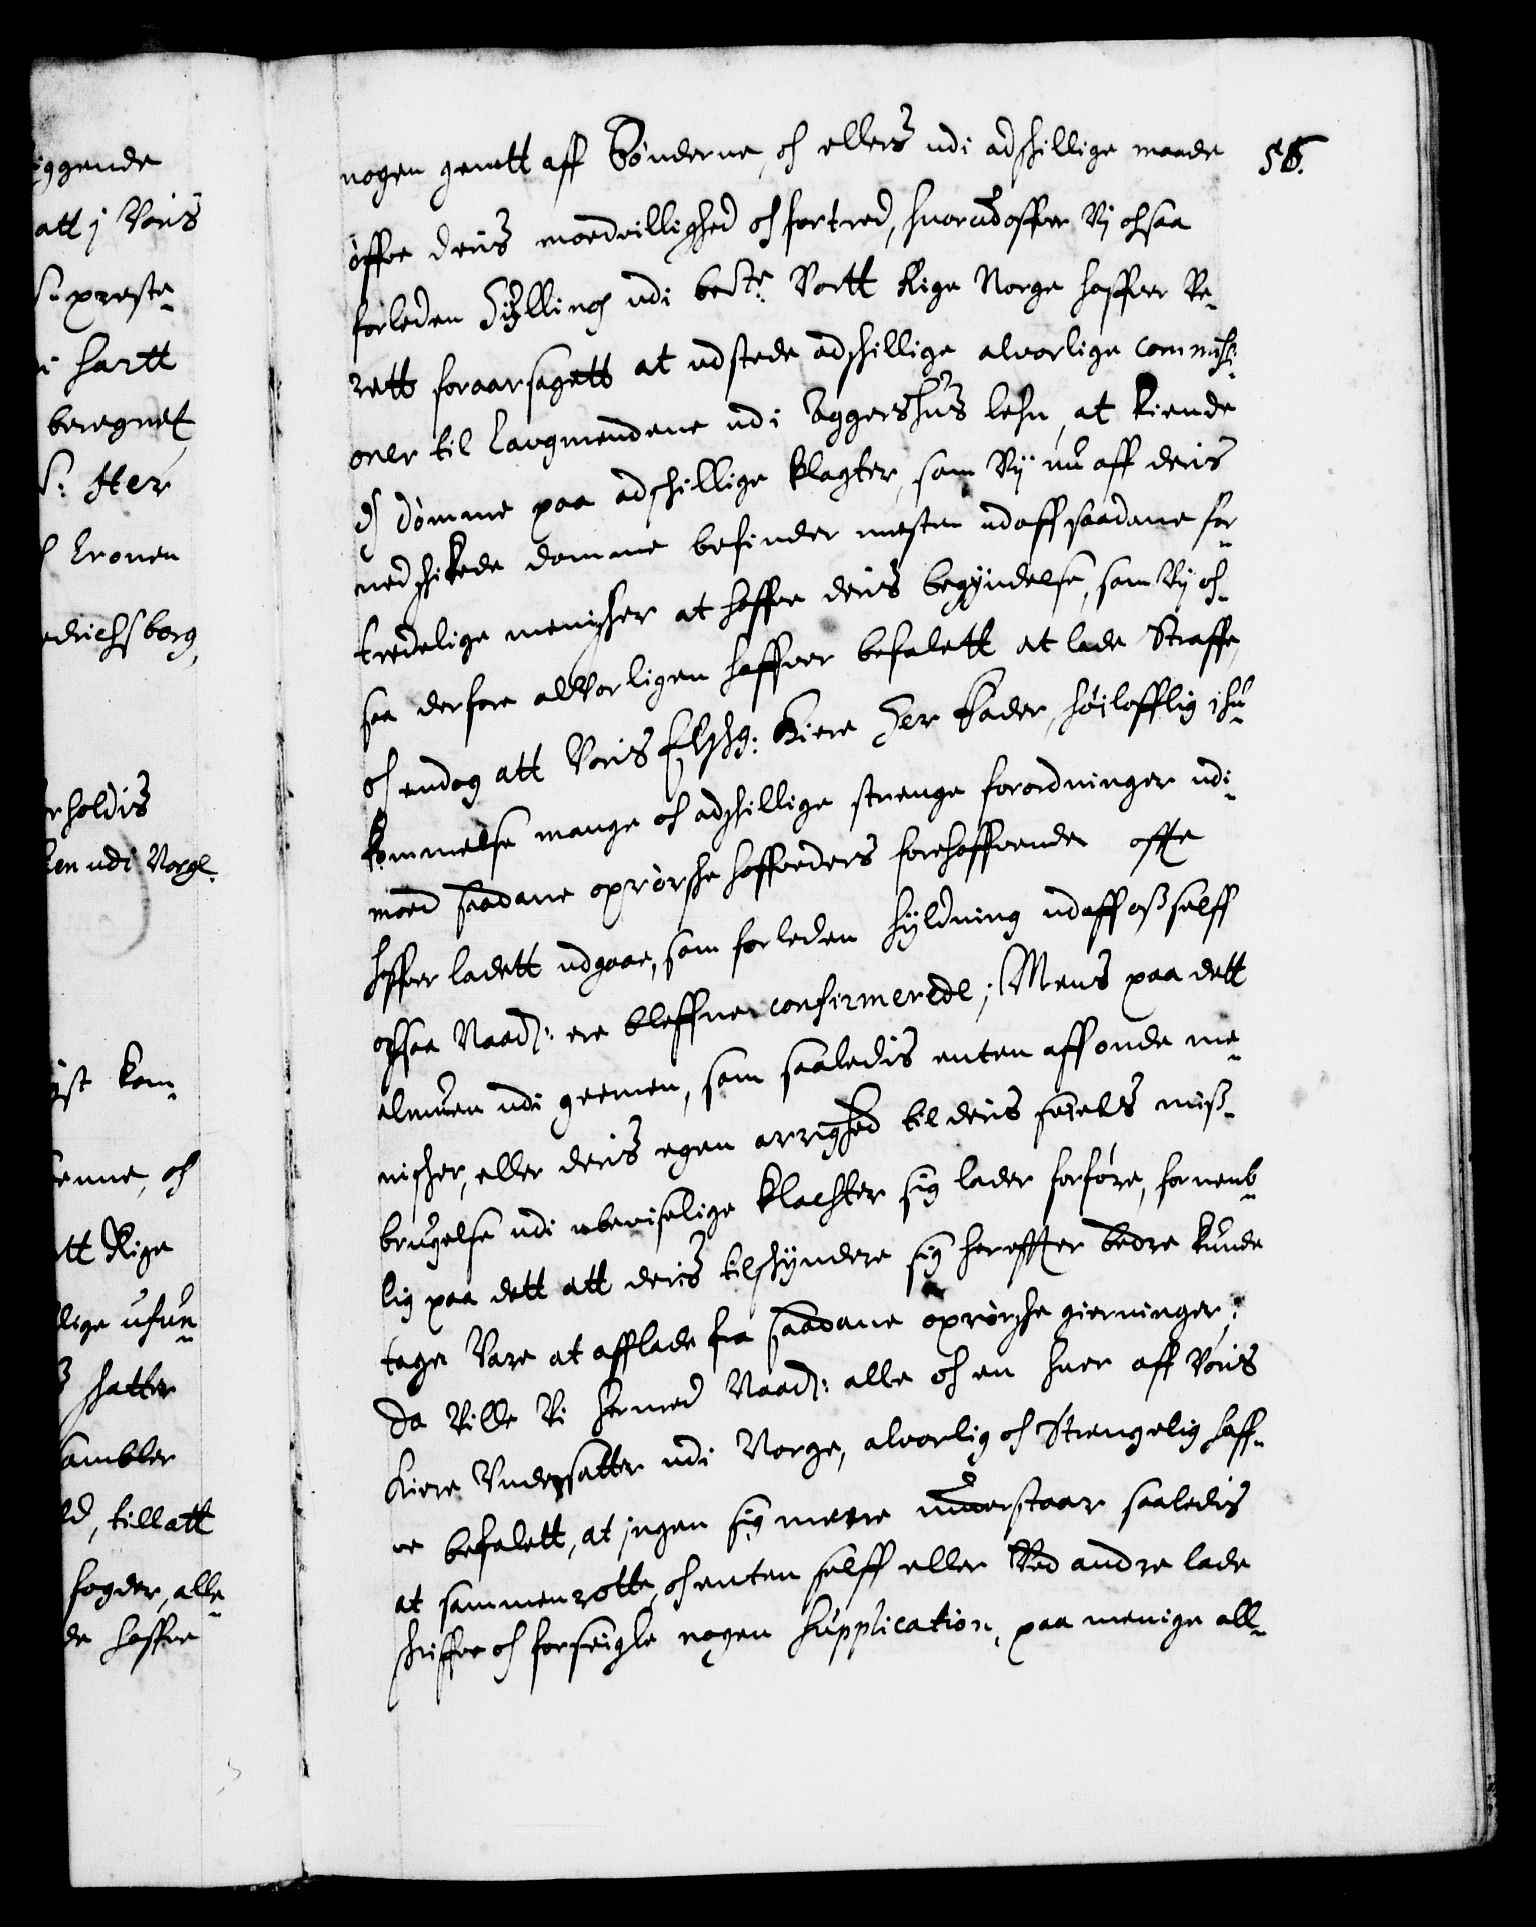 iggende
att j Voris
S: preste¬
i hartt
beregnet
S: Her
Cronen
edrichsborg,
rholdis
ken udi Norge.
yst kom¬
enne, och
tt Rige
dlige ufun¬
shatter
sambler
ld, till att
fogder, alle¬
de haffue
58.
nogen gunett aff Bønderne, och ellers udi adskillige maade
øffue deris modvillighed och fortred, huorudoffuer Vj ochsaa
forleden Hylling udi bete Vortt Rige Norge haffuer Ve¬
rett foraarsagett at udstede adskillige alvorlige commissi¬
oner til Laugmendene udi Aggershus lehn, at kiende
och dømme paa adskillige klagter, som Vij nu aff deris
nedskikede domme befinder mesten udaff saadane for¬
tredelige menisker at haffue deris begyndelse, som Vij och¬
saa derfore alvorligen haffuer befalett at lade Straffe,
och endog att Voris Elskg: Kiere Her Fader, høilofflig ihu¬
kommelse mange och adskillige strenge forordninger udi¬
mod saadane oprørske hoffueders forehaffvende offte
haffuer ladett udgaae, som forleden hyldning udaff oß selff
ochsaa Naadl: ere bleffuen confirmerede; Mens paa dett
almuen udi gemen, som saaledis enten aff onde me¬
nisker, eller deris egen arrighed til deris sielvs miß¬
brugelse udi ubeviselige klachter sig lader forføre, fornemb¬
lig paa dett att deris tilskyndere sig hereffter bedre kunde
tage Vare at afflade fra saadane oprørske gierninger,
Da Ville Vi hermed Naadl: alle och en huer aff Voris
kiere Undersatter udi Norge, alvorlig och Strengelig haff¬
ue befalett, at jngen sig mere understaar saaledis
at sammenrotte, och enten selff eller Ved andre lade
skriffue och forseigle nogen supplication, paa menige all¬